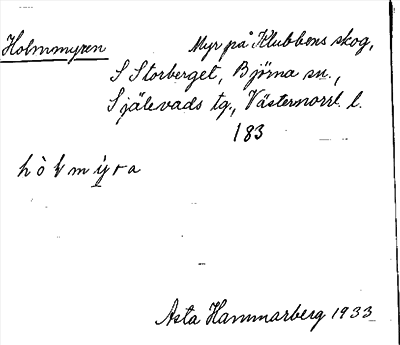 Holmmyren Myr på Klubbens skog,
S Storberget, Björna sn.,
Själevads tg., Västernorrl. l.
183
Asta Hammarberg 1933